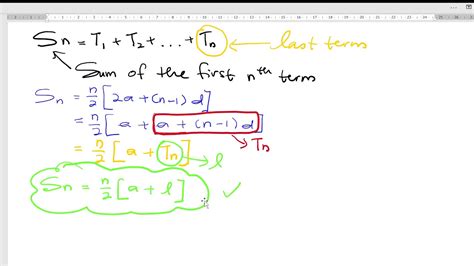 Sn = T1 + T2 + ... + Tn last terms
Sum of the first nth terms
Sn = n/2 [2a + (n-1) d]
= n/2 [a + a + (n-1) d]
Tn
= n/2 [a + Tn] l
Sn = n/2 [a + l] ✓